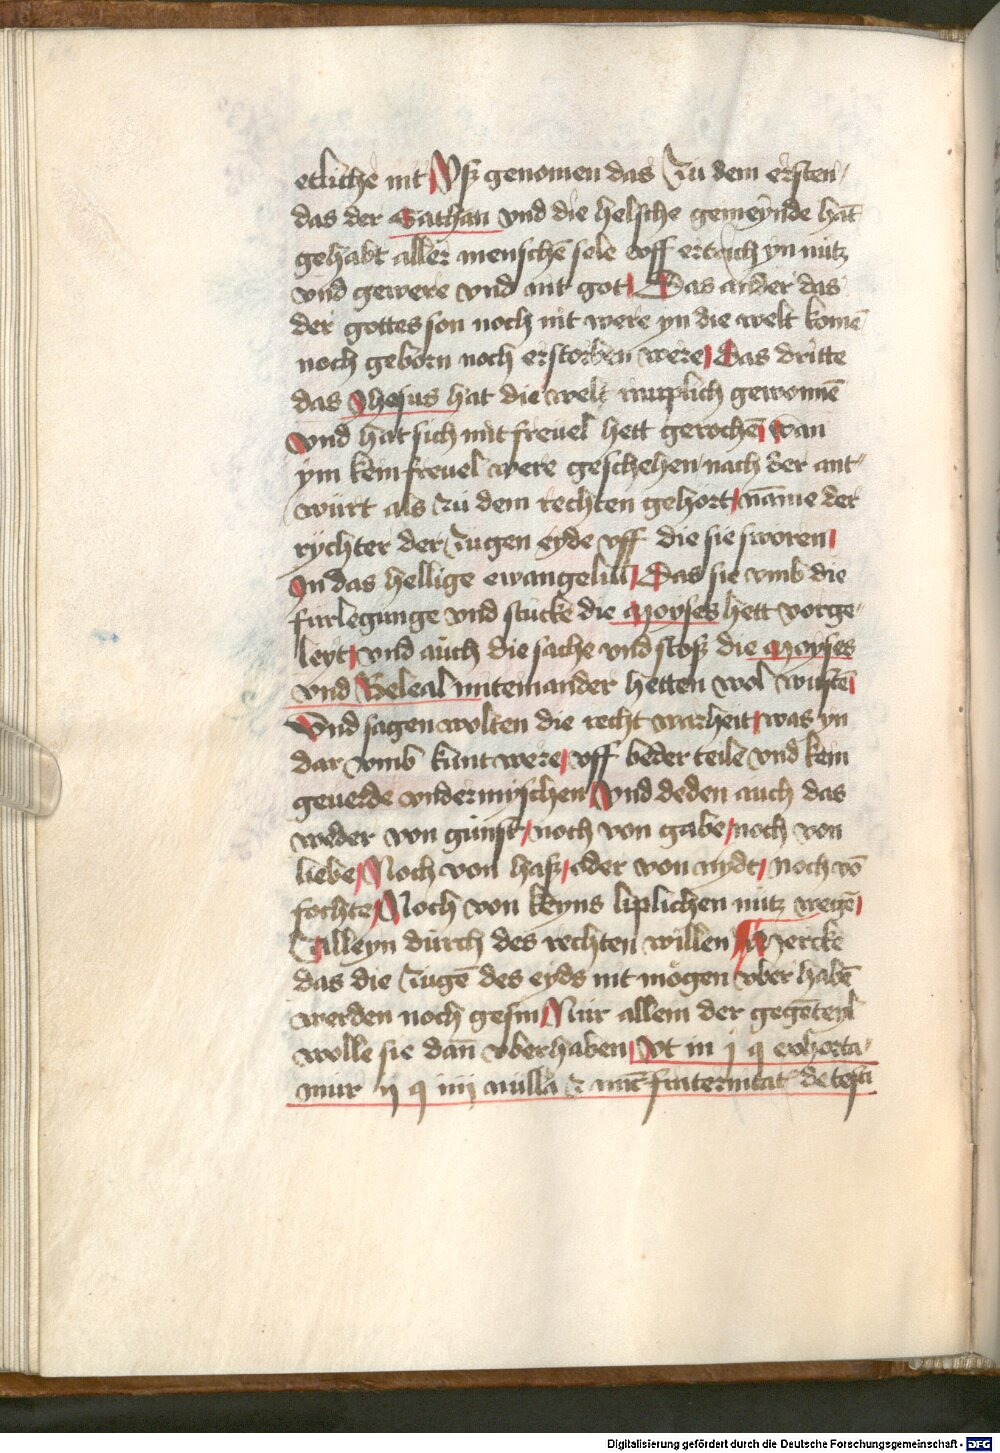 etliche nit Vsz genomen das Zu dem ersten
das der Sathan vnd die helsche gemeynde hat
gehabt aller menschē sele vff ertrich yn nutz
vnd gewere vnd ant got Das ander das
der gottes son noch nit were yn die welt komē
noch geborn noch erstorben were Das dritte
das Jhesus hat die welt gewonnē
Vnd hat sich mit frevel hett gerochē wan
ym kein frevel were geschehen nach der ant
würt als zu dem rechten gehort name der
rychter der Zugen eyde vff die sie sworen
In das hellige ewangeliū Das sie vmb die
furlegunge vnd stucke die Moyses hett vorge
leyt vnd auch die sache vnd stosz die Moyses
vnd Beleal miteinander hetten wol wustē
Vnd sagen wolten die recht warheit was yn
dar vmb kunt were vff beder teile vnd kein
geuerde vndermyschen Vnd deden auch das
weder von gunst noch von gabe noch von
liebe Noch von hasz oder von nydt noch vō
fochte Noch von keyns liplichen nutz wegē
Alleyn durch des rechten willen Mercke
das die Zugē des eyds nit mogen vber habē
werden noch gesin Nur allein der gegēteyl
wolle sie dan vberhaben Vt in j q exhorta
mur ij q iiij nulla fraternitat de testi
Digitalisierung gefördert durch die Deutsche Forschungsgemeinschaft - DFG